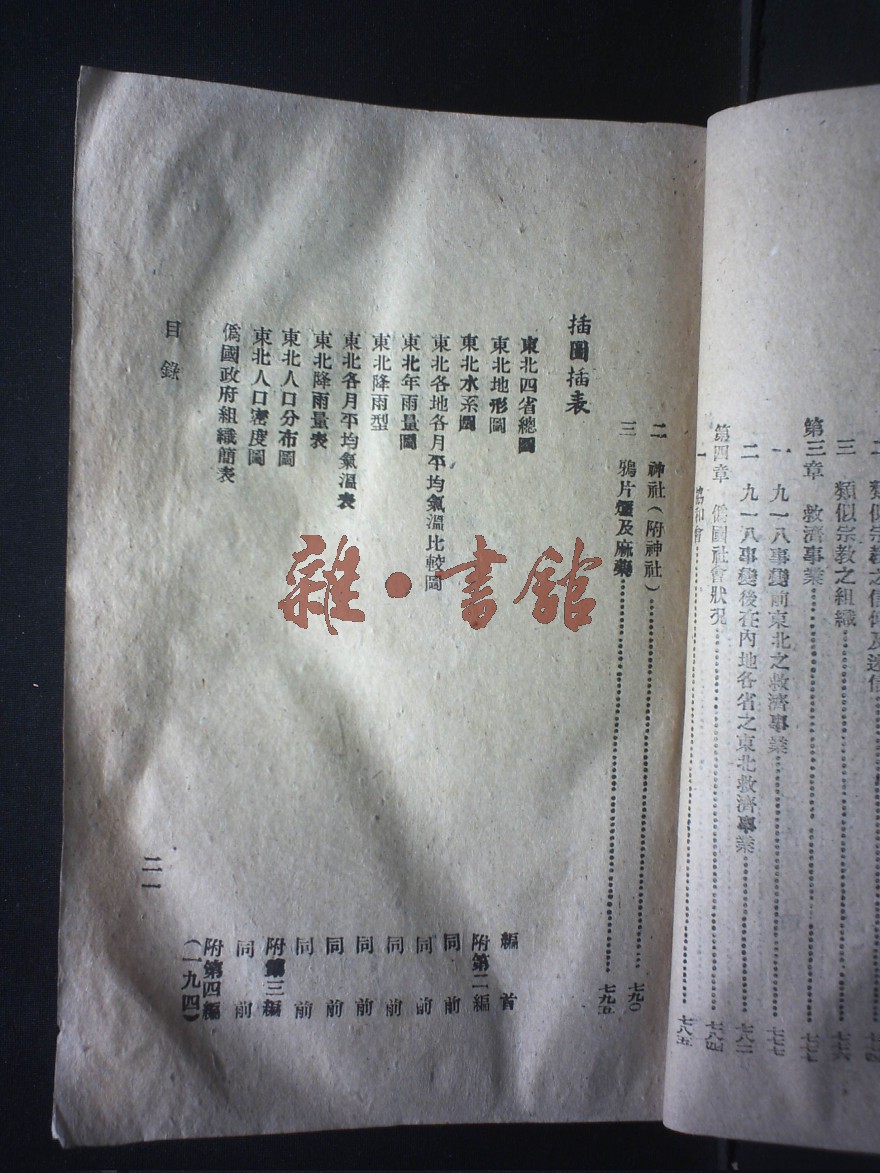 二 類似宗教之信仰及迷信
三 類似宗教之組織……七七六
第三章 救濟事業……七七七
一 九一八事變前東北之救濟事業……七七七
二 九一八事變後在內地各省之東北救濟事業……七八二
第四章 僞國社會狀況……七八四
一 協和會……七八五
二 神社(附神社)……七九〇
三 鴉片煙及麻藥……七九五
插圖插表
東北四省總圖 編首
東北地形圖 附第二編
東北水系圖 同前
東北各地各月平均氣溫比較圖 同前
東北年雨量圖 同前
東北降雨型 同前
東北各月平均氣溫表 同前
東北降雨量表 同前
東北人口分布圖 附第三編
東北人口密度圖 同前
僞國政府組織簡表 附第四編
(一九四)
目錄 二一
雜·書館